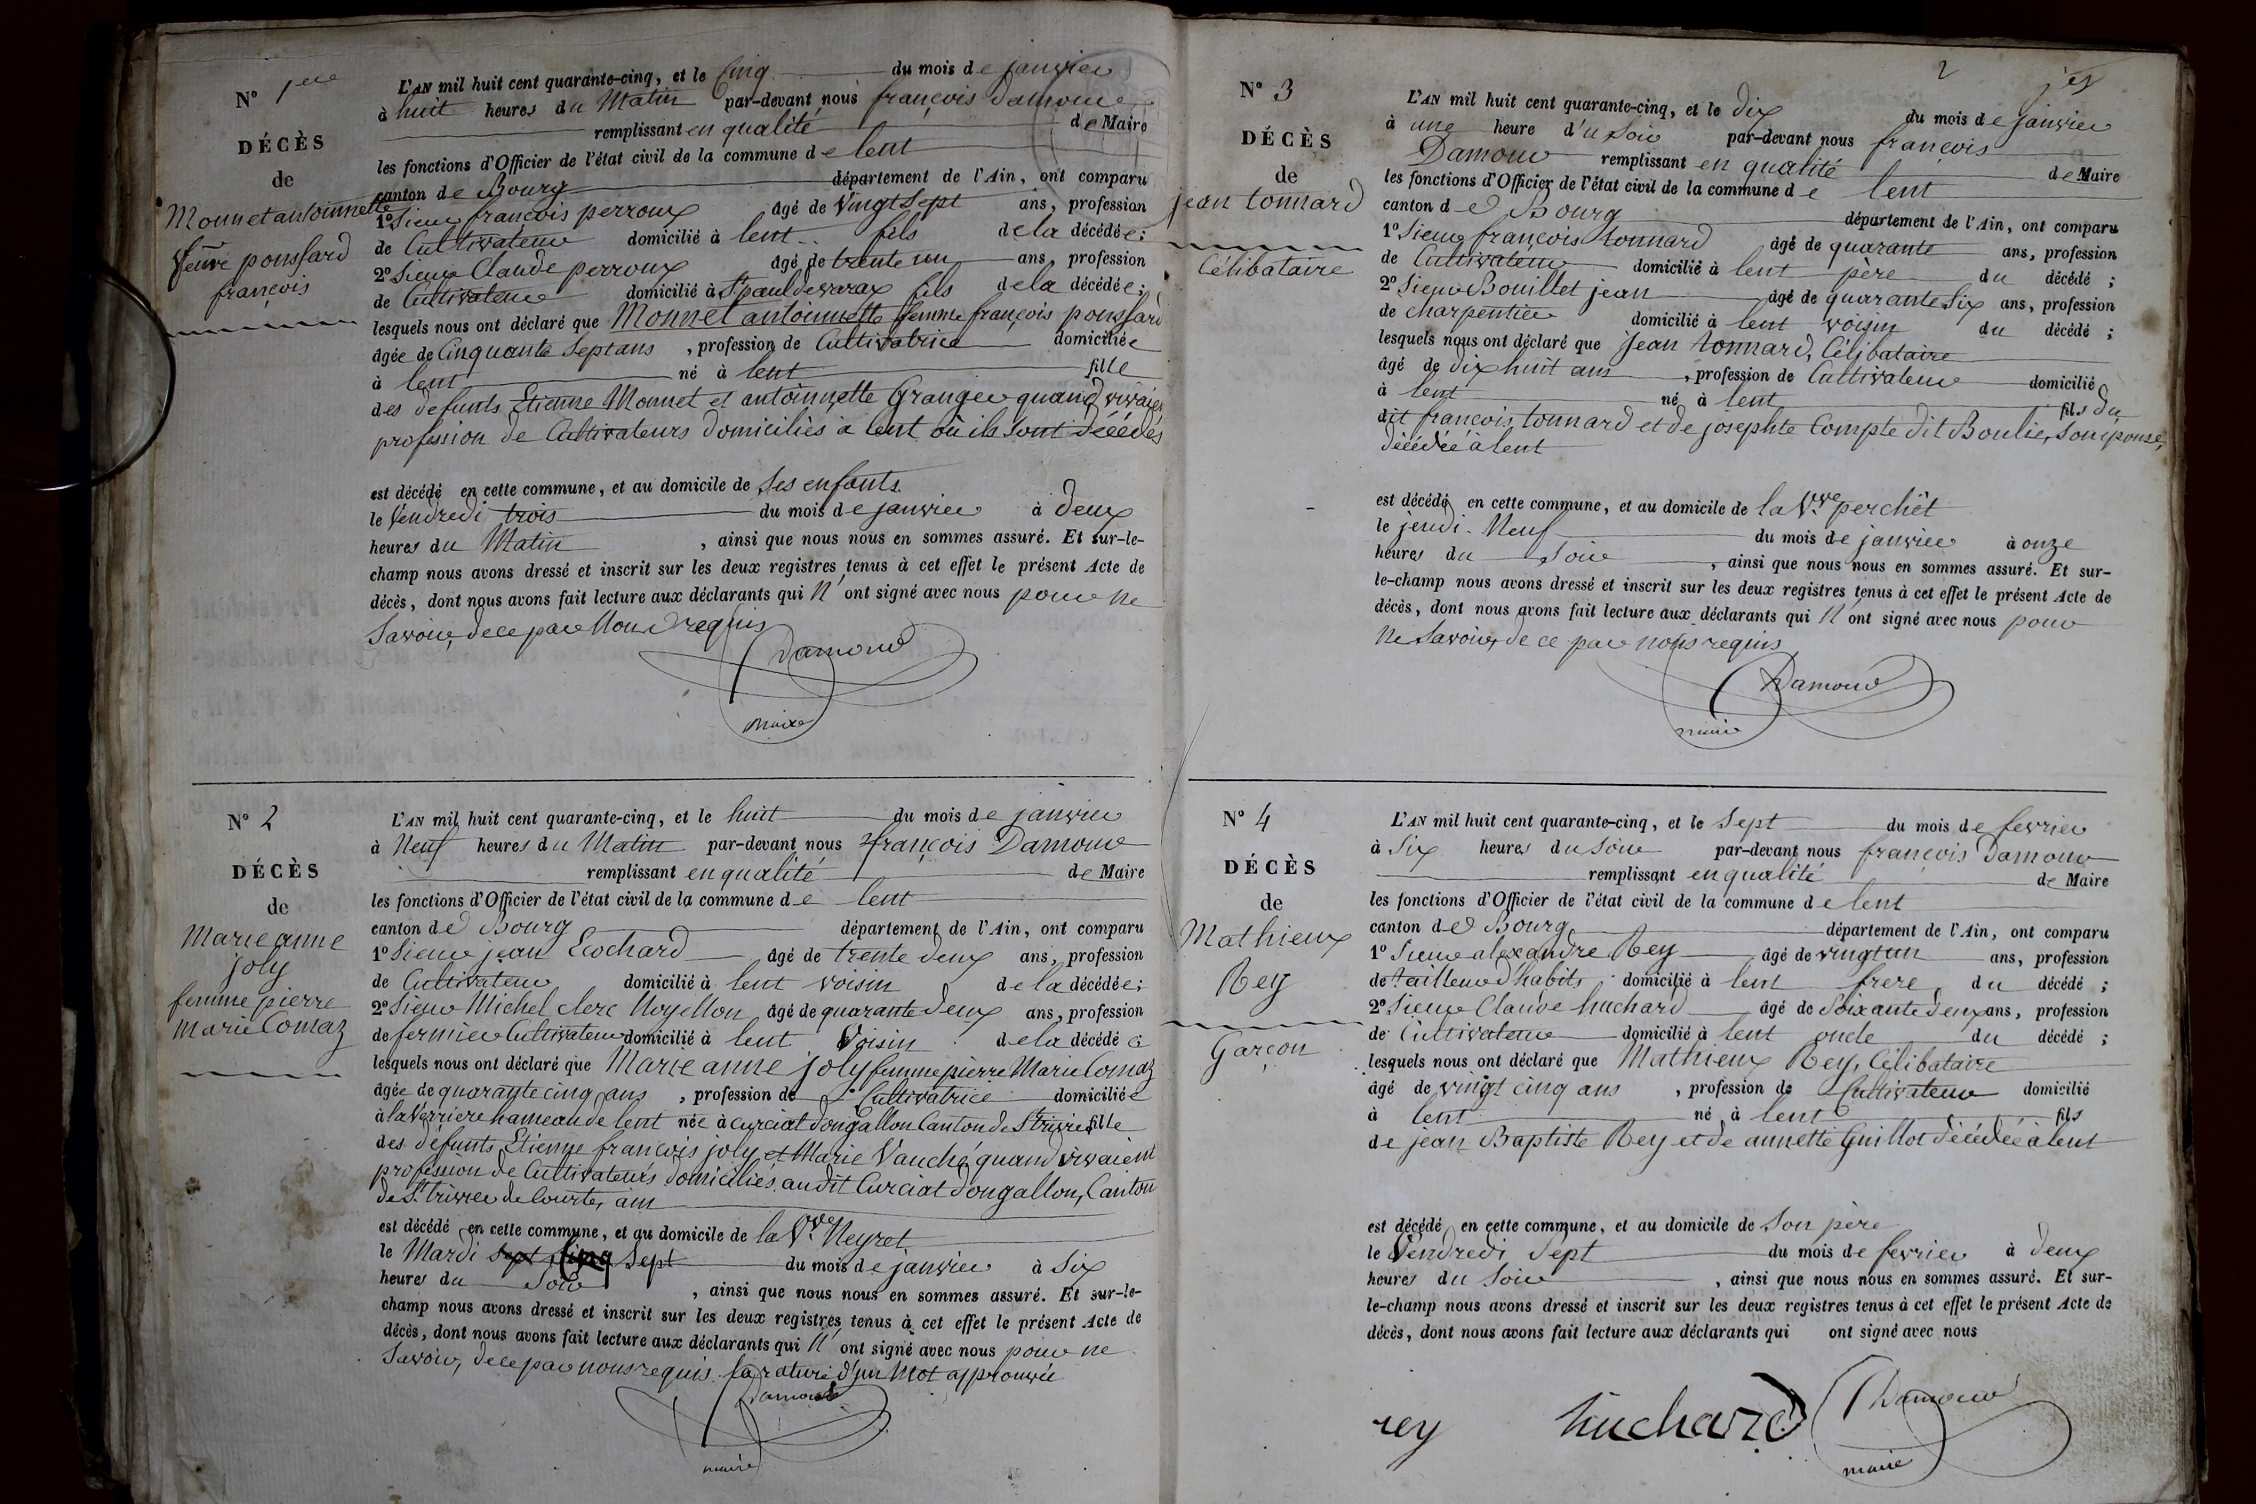 N° 1er
DÉCÈS
de
Monnet antoinnette
veuve poussard
françois
L'AN mil huit cent quarante-cinq, et le Cinq du mois de janvier
à huit heures du Matin par-devant nous françois Damour
remplissant en qualité de Maire
les fonctions d'Officier de l'état civil de la commune de lent
canton de Bourg département de l'Ain, ont comparu
1° Sieur françois perroux âgé de Vingt Sept ans, profession
de Cultivateur domicilié à lent fils de la décédée;
2° Sieur Claude perroux âgé de trente un ans, profession
de Cultivateur domicilié à St paul de varax fils de la décédée;
lesquels nous ont déclaré que Monnet antoinnette femme françois poussard
âgée de Cinquante Sept ans, profession de Cultivatrice domiciliée
à lent né à lent fille
des defunts Etienne Monnet et antoinnette Granger quand vivaient
profession de Cultivateurs domiciliés à lent où ils sont décédés
est décédé en cette commune, et au domicile de Ses enfants
le Vendredi trois du mois de janvier à deux
heures du Matin, ainsi que nous nous en sommes assuré. Et sur-le-
champ nous avons dressé et inscrit sur les deux registres tenus à cet effet le présent Acte de
décès, dont nous avons fait lecture aux déclarants qui N'ont signé avec nous pour ne
Savoir, de ce par Nous requis
Damour
maire
N° 2
DÉCÈS
de
Marie anne
joly
femme pierre
Marie Comaz
L'AN mil huit cent quarante-cinq, et le huit du mois de janvier
à Neuf heures du Matin par-devant nous françois Damour
remplissant en qualité de Maire
les fonctions d'Officier de l'état civil de la commune de lent
canton de Bourg département de l'Ain, ont comparu
1° Sieur jean Ecochard âgé de trente deux ans, profession
de Cultivateur domicilié à lent voisin de la décédée;
2° Sieur Michel clerc Noyellon âgé de quarante deux ans, profession
de fermier Cultivateur domicilié à lent Voisin de la décédée
lesquels nous ont déclaré que Marie anne joly femme pierre Marie Comaz
âgée de quarante cinq ans, profession de Cultivatrice domiciliée
à la Verriere hameau de lent née à curciat dongallon Canton de St trivier fille
des défunts Etienne françois joly et Marie Vauché quand vivaient
profession de Cultivateurs domiciliés audit Curciat dongallon, Canton
de St trivier de Courtes, ain
est décédé en cette commune, et au domicile de la Vve Neyret
le Mardi sept cinq Sept du mois de janvier à Six
heures du Soir, ainsi que nous nous en sommes assuré. Et sur-le-
champ nous avons dressé et inscrit sur les deux registres tenus à cet effet le présent Acte de
décès, dont nous avons fait lecture aux déclarants qui N'ont signé avec nous pour ne
Savoir, de ce par nous requis. la rature d'un Mot approuvée
Damour
maire
2
N° 3
DÉCÈS
de
jean tonnard
Célibataire
L'AN mil huit cent quarante-cinq, et le dix du mois de janvier
à une heure du Soir par-devant nous françois
Damour remplissant en qualité de Maire
les fonctions d'Officier de l'état civil de la commune de lent
canton de Bourg département de l'Ain, ont comparu
1° Sieur françois tonnard âgé de quarante ans, profession
de Cultivateur domicilié à lent père du décédé;
2° Sieur Bouillet jean âgé de quarante Six ans, profession
de charpentier domicilié à lent voisin du décédé;
lesquels nous ont déclaré que Jean tonnard, Célibataire
âgé de dix huit ans, profession de Cultivateur domicilié
à lent né à lent fils du
dit françois tonnard et de josephte Compte dit Boulie, son épouse,
décédée à lent
est décédé en cette commune, et au domicile de la Vve perchet
le jeudi Neuf du mois de janvier à onze
heures du Soir, ainsi que nous nous en sommes assuré. Et sur-
le-champ nous avons dressé et inscrit sur les deux registres tenus à cet effet le présent Acte de
décès, dont nous avons fait lecture aux déclarants qui N'ont signé avec nous pour
Ne Savoir, de ce par nous requis
Damour
maire
N° 4
DÉCÈS
de
Mathieux
Rey
Garçon
L'AN mil huit cent quarante-cinq, et le Sept du mois de fevrier
à Six heures du Soir par-devant nous françois Damour
remplissant en qualité de Maire
les fonctions d'Officier de l'état civil de la commune de lent
canton de Bourg département de l'Ain, ont comparu
1° Sieur alexandre Rey âgé de vingt un ans, profession
de tailleur d'habits domicilié à lent frere du décédé;
2° Sieur Claude huchard âgé de Soixante deux ans, profession
de Cultivateur domicilié à lent oncle du décédé;
lesquels nous ont déclaré que Mathieux Rey, Célibataire
âgé de vingt cinq ans, profession de Cultivateur domicilié
à lent né à lent fils
de jean Baptiste Rey et de annette Guillot décédée à lent
est décédé en cette commune, et au domicile de Son père
le Vendredi Sept du mois de fevrier à deux
heures du Soir, ainsi que nous nous en sommes assuré. Et sur-
le-champ nous avons dressé et inscrit sur les deux registres tenus à cet effet le présent Acte de
décès, dont nous avons fait lecture aux déclarants qui ont signé avec nous
rey huchard Damour
maire